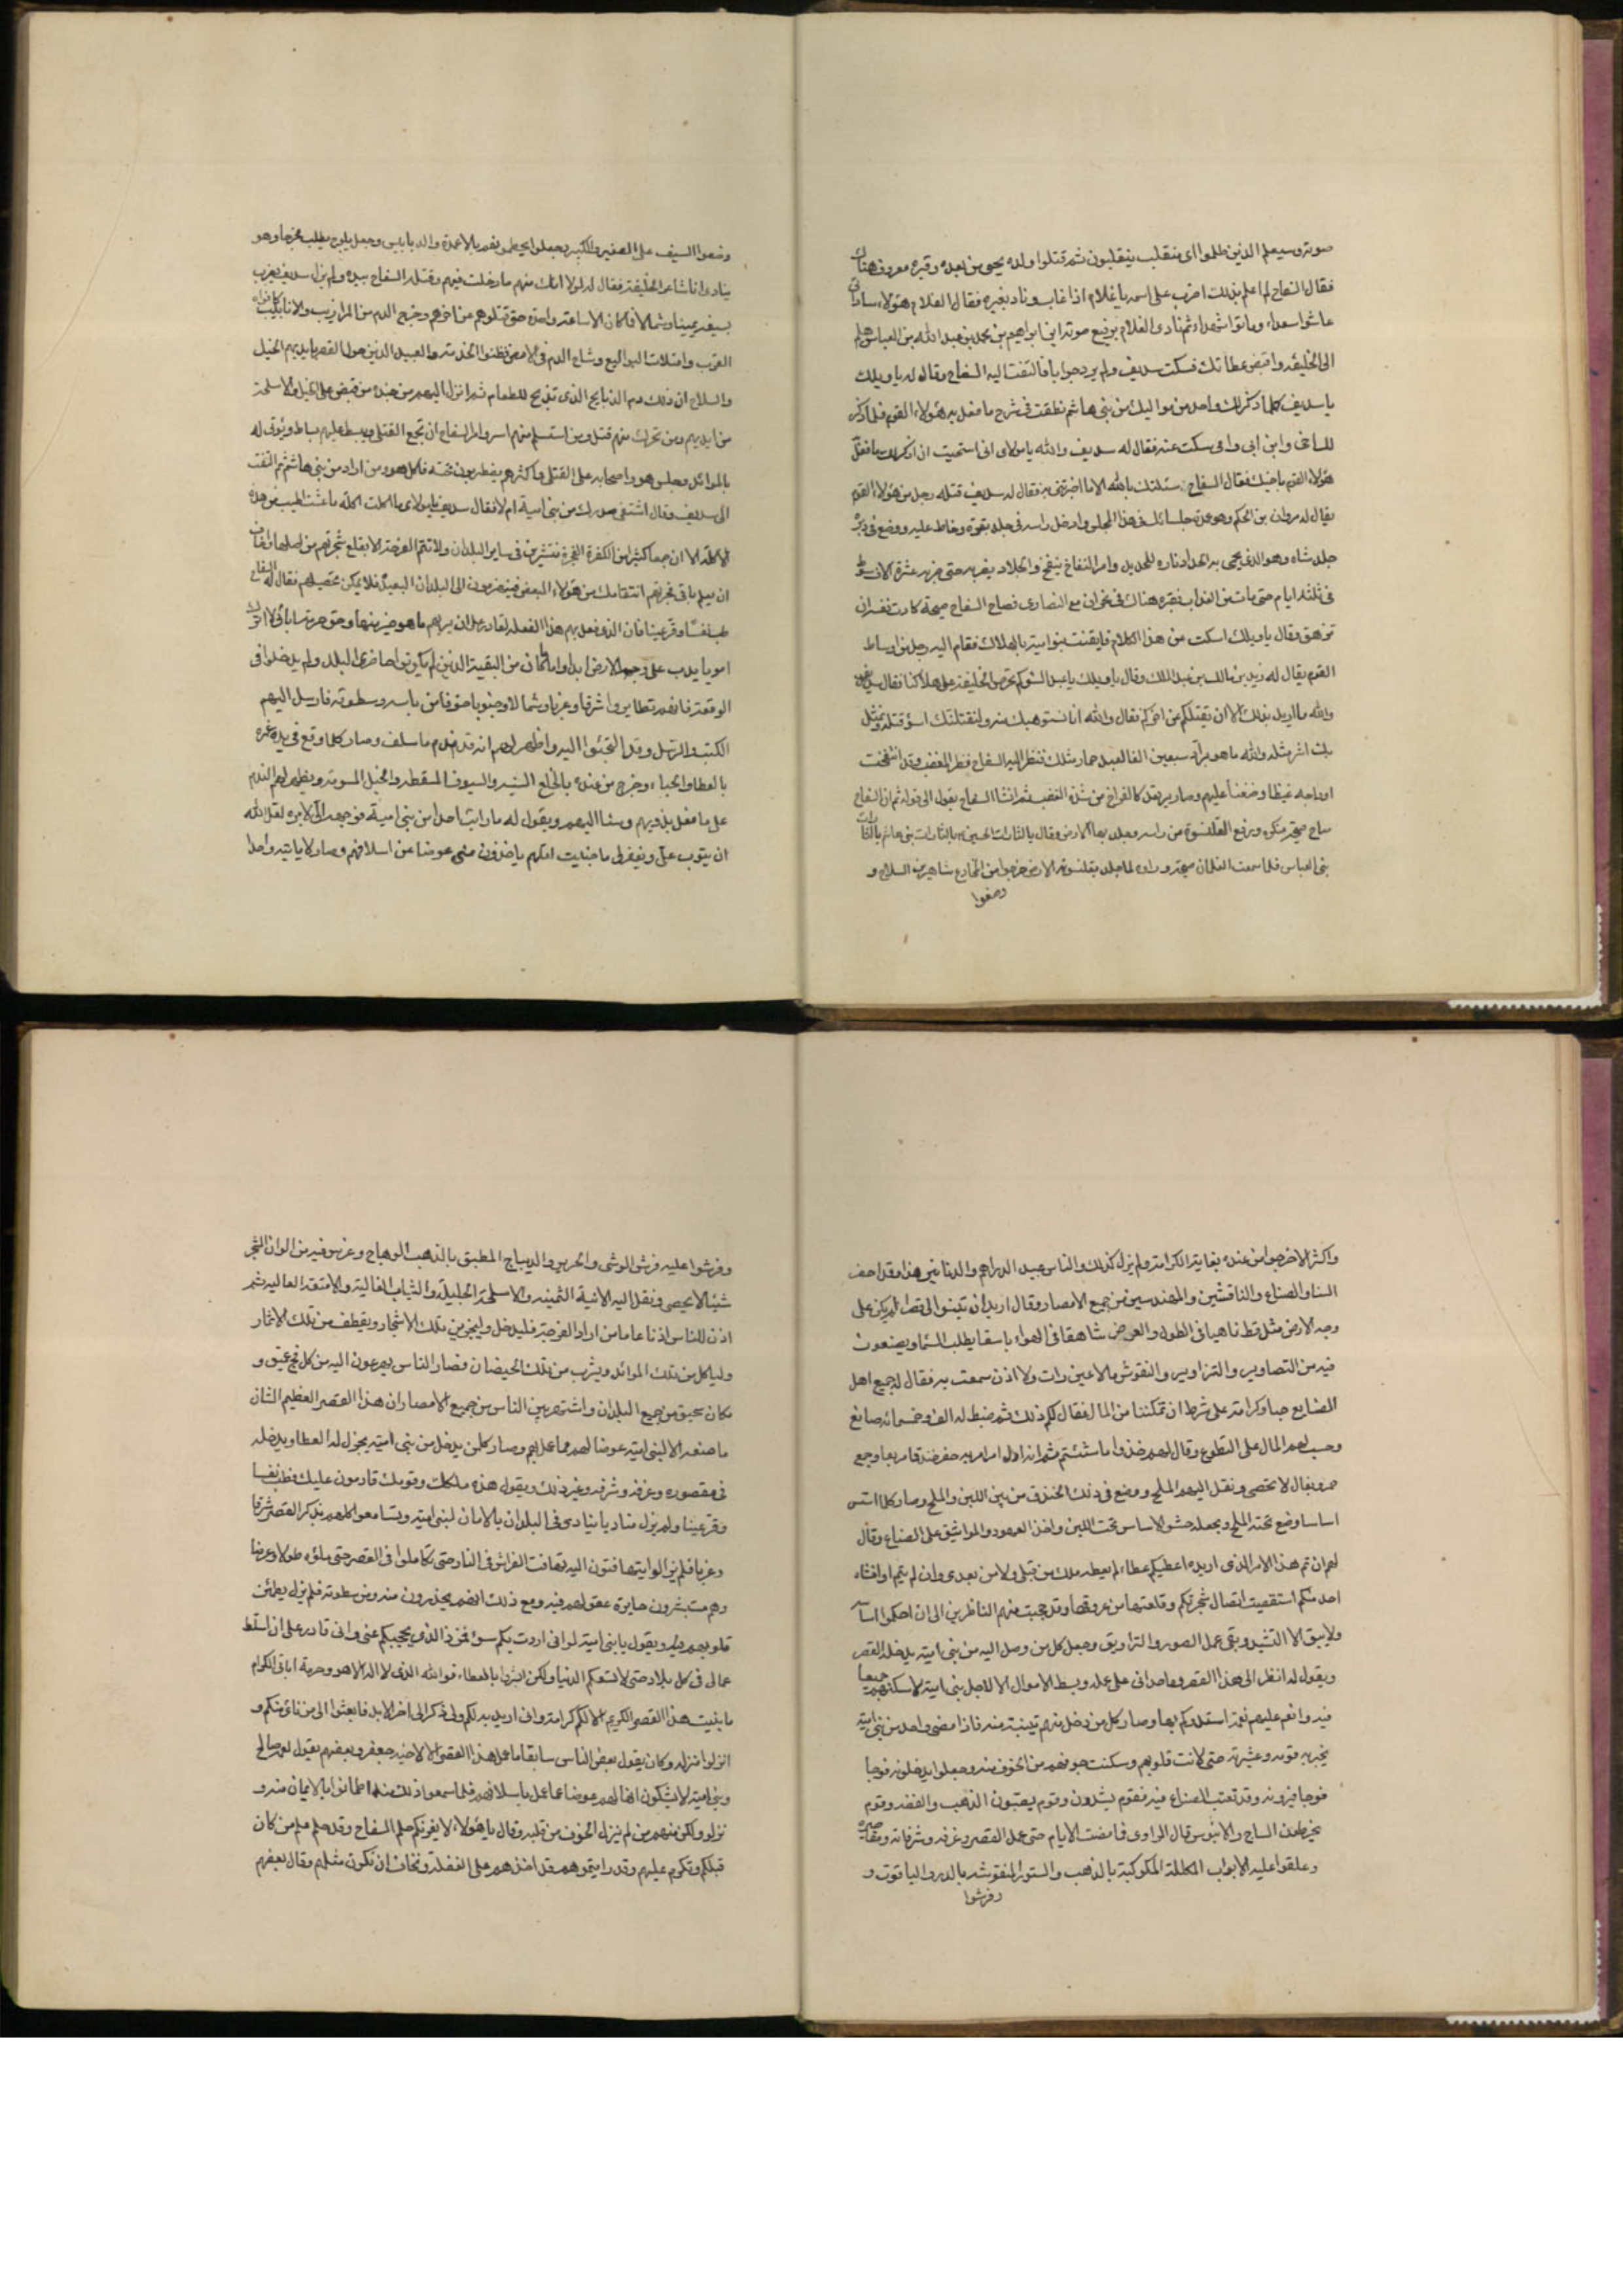 صوته وسيعلم الذين ظلموا اى منقلب ينقلبون ثم قتلوا ولده يحيى من بعده وقبره معروف هناك
فقال السفاح لم اعلم بذلك اضرب على اسمه يا غلام اذا غاب وناد بغيره فقال الغلام هؤلاء ساداتى
عاشوا سعداء وماتوا شهداء ثم نادى الغلام برفيع صوته اين ابراهيم بن محمد بن عبد الله بن العباس هلم
الى الخليفه واقبض عطائك فسكت سديف ولم يرد جوابا فالتفت اليه السفاح وقال له يا ويلك
يا سديف كلما ذكر لك واحد من مواليك من بنى هاشم نطقت فى شرح ما فعل به هؤلاء القوم فلما ذكر
للـ اخى وابن ابى وامى سكت عنه فقال له سديف والله يا مولاى انى استحييت ان اذكر لك ما فعل
هؤلاء القوم باخيك فقال السفاح سئلتك بالله الا ما اخبرتنى به فقال له سديف قتله رجل من هؤلاء القوم
يقال له مروان بن الحكم وهو من جلسائك فى هذا المجلس وادخل راسه فى جلد بقرة وخاط عليه ووضع فى دبره
جلد شاه وهو الذى يحمى به الحداد ناره للحديد وامر النفاخ ينفخ والجلاد يضربه حتى ضربه عشرة الاف سوط
فى ثلثة ايام حتى مات من العذاب فقبره هناك فى حران مع النصارى فصاح السفاح صيحة كادت نفسه ان
تزهق وقال يا ويلك اسكت من هذا الكلام فايقنت بنو امية بالهلاك فقام اليه رجل من اوساط
القوم يقال له زيد بن مالك بن عبد الملك وقال يا ويلك يا عبد السوء كم تحرض الخليفة على هلاكنا فقال سديف
والله ما اريد بذلك الا ان يقتلكم عن اخركم فقال والله انا نستوهبك منه ولنقتلنك اسوء قتلة ونمثل
بك اشر مثلة والله ما هو براد سبعين الفا لعبد حمار مثلك فنظر اليه السفاح فظر المغضب وقد انتفخت
اوداجه غيظا وضغنا عليهم وصار يرقل كالفراخ من شدة الغضب ثم انشا السفاح يقول الى قوله ثم ان السفاح
صاح صيحة منكره ورفع القلنسوة من راسه وجلد بها الارض وقال يا لثارات الحسين يا لثارات بنى هاشم يا لثارات
بنى العباس فلما سمعت الغلمان صيحته وراوه لما جلد بقلنسوته الارض خرجوا من المخادع شاهرين السلاح و
وضعوا
وضعوا السيف على الصغير والكبير وجعلوا يحطمونهم بالاعمدة والدبابيس وجعل يلوح يطلب مخرجا وهو
ينادى انا شاعر الخليفة فقال له لولا انك منهم ما دخلت فيهم وقتله السفاح بيده ولم يزل سديف يضرب
بسيفه يمينا وشمالا فما كان الا ساعة واحدة حتى قتلوهم عن اخرهم وخرج الدم من المزاريب والانابيب كافواه
القرب وامتلات البواليع وشاح الدم فى الارض فظنوا الخدمة والعبيد الذين حول القصر بايديهم الخيل
والسلاح ان ذلك دم الذبايح الذى تذبح للطعام ثم انزل اليهم من عنده من قبض على الخيل والاسلحة
من ايديهم ومن تحرك منهم قتل ومن استسلم منهم اسر وامر السفاح ان تجمع القتلى ويبسط عليهم بساط ويؤتى له
بالموائد وجلس هو واصحابه على القتلى واكثرهم يضطربون تحته فاكل هو ومن اراد من بنى هاشم ثم التفت
الى سديف وقال اشتفى صدرك من بنى امية ام لا فقال سديف يا مولاى ما اكلت اكلة ما عشت اطيب من هذه
الاكلة الا ان جمعا كثيرا من الكفرة الفجرة منتشرة فى ساير البلدان ولا تتم الفرحة الا بقلع شجرتهم من اصلها واخاف
ان يعلم باقى شجرتهم انتقامك من هؤلاء البعض فينهزمون الى البلدان البعيدة فلا يمكن تحصيلهم فقال له السفاح
طب نفسا وقر عينا فان الذى فعل بهم هذا الفعل لقادر على ان يريهم ما هو خير منها وحق حرمة ابائى لا اترك
امويا يدب على وجه الارض ابدا واما ما كان من البقية الذين لم يكونوا حاضرى البلد ولم يدخلوا فى
الوقعة فانهم تطايروا شرقا وغربا وشمالا وجنوبا خوفا من باسه وسطوته فارسل اليهم
الكتب والرسل وقد التجئوا اليه واظهر لهم انه قد ندم ما سلف وصار كلما وقع فى يده غمره
بالعطا والحباء وخرج من عنده بالخلع السنيه والسيوف المسقطه والخيل المسومة ويظهر لهم الندم
على ما فعل بذويهم ومننا اليهم ويقول له ما رايت احدا من بنى امية فوجهه الى لابره لعل الله
ان يتوب على ويغفر لى ما جنايت لعلهم ياخذون منى عوضا عن اسلافهم وصار لا ياتيه واحدا
واكثر الا خرجوا من عنده بغاية الكرامة ولم يزل كذلك والناس عبيد الدراهم والدنانير هذا وقد احضر
البنا والصناع والناقشين والمهندسين من جميع الامصار وقال اريد ان تبنوا لى قصرا لم يكن على
وجه الارض مثله قط ناهيا فى الطول والعرض شاهقا فى الهواء باسقا يطلب السماء ويصنعون
فيه من التصاوير والتزاوير والنقوش ما لا عين رات ولا اذن سمعت به فقال له جميع اهل
الصنايع حبا وكرامة على شرط ان تمكننا من المال فقال لكم ذلك ثم ضبط له الف وخمسمائه صانع
وحسب لهم المال على القطوع وقال لهم خذوا ما شئتم ثم انه اول امر امر به حفر خندقا مربعا وجمع
حمر وبغال لا تحصى ونقل اليهم الملح ووضع فى ذلك الخندق من بين اللبن والملح وصار كلما اسس
اساسا وضع تحته الملح ويجعله حشو الاساس تحت اللبن واخذ العهود والمواثيق على الصناع وقال
لهم ان تم هذا الامر الذى اريده اعطيكم عطاء لم يعطه ملك من قبلى ولا من بعدى وان لم يتم او افشاه
احد منكم استقصيت اتصال شجرتكم وقلعتها من عروقها وقد عجبت منهم الناظرين الى ان احكموا اساسه
ولم يبق الا التشييد وبقى عمل الصور والتزاويق وجعل كل من وصل اليه من بنى امية يدخله القصر
ويقول له انظر الى هذا القصر وما حدانى على عمله وبسط الاموال الا لاجل بنى امية لاسكنهم جميعا
فيه وانعم عليهم نعمة استعدوكم بها وصار كل من دخل منهم تبينه منه فاذا مضى واحد من بنى امية
يخبر به قومه وعشيرته حتى لانت قلوبهم وسكنت خوفهم من الخوف منه وجعلوا يدخلونه فوجا
فوجا فيزونه وقد تعتب الصناع فيه فقوم يشيدون وقوم يصبون الذهب والفضه وقوم
يخرطون الساج والابنوس قال الراوى فما مضت الايام حتى عمل القصر وغرفه وشرفاته ومقاصيره
وعلقوا عليه الابواب المكللة المكوكبة بالذهب والستور المنقوشه بالدر والياقوت و
وفرشوا
وفرشوا عليه فرش الوشى والحرير والديباج المطبق بالذهب الوهاج وغرسوا فيه من الوان الشجر
شيئا لا يحصى ونقل اليه الانية الثمينه والاسلحة الجليلة والثياب الغالية والامتعة العاليه ثم
اذن للناس اذنا عاما من اراد الفرجة فليدخل وليخرج من تلك الاشجار ويقطف من تلك الاثمار
وليأكل من تلك الموائد ويشرب من تلك الحيضان فصار الناس يهرعون اليه من كل فج عميق و
مكان سحيق من جميع البلدان واشتهر بين الناس من جميع الامصار ان هذا القصر العظيم الشان
ما صنعه الا لبنى امية عوضا لهم مما عمل بهم وصار كل من يدخل من بنى امية يجزل له العطا ويدخله
فى مقصوره وغرفه وشرفه وغير ذلك ويقول هذه ملكك وقومك قادمون عليك فطب نفسا
وقر عينا ولم يزل مناديا ينادى فى البلدان بالامان لبنى امية وتسامعوا كلهم بذكر القصر شرقا
وغربا فلم يزالوا يتهافتون اليه تهافت الفراش فى النار حتى تكاملوا فى القصر حتى ملؤه طولا وعرضا
وهم مستبشرون حايزة عقولهم فيه ومع ذلك انهم يحذرون منه ومن سطوته فلم يزل يطمئن
قلوبهم بيده ويقول يا بنى امية لو انى اردت بكم سوء فمن ذا الذى يحجبكم عنى وانى قادر على ان اسلط
عمالى فى كل بلاد حتى لا تسعكم الدنيا ولكن ابشروا بالعطاء فوالله الذى لا اله الا هو وحرمة ابائى الكرام
ما بنيت هذا القصر الكريم الا لكم كرامة وانى اريد به لكم ولى ذكر الى اخر الابد فابعثوا الى من نائ منكم و
انزلوا منزله وكان يقول بعض الناس سابقا ما عمل هذا القصر الا لاخيه جعفر وبعضهم يقول لعمه صالح
وبنى امية لا يشكون انها لهم عوضا عما عمل باسلافهم فلما سمعوا ذلك منه اطمانوا بالايمان منه و
نزلو ولكن منهم من لم يزل الخوف من قلبه وقال يا هؤلاء لا يغرنكم حلم السفاح وقد حلم على من كان
قبلكم وتكرم عليهم وقد رايتموهم قد اخذهم على الغفلة ونخاف ان نكون مثلهم وقال بعضهم